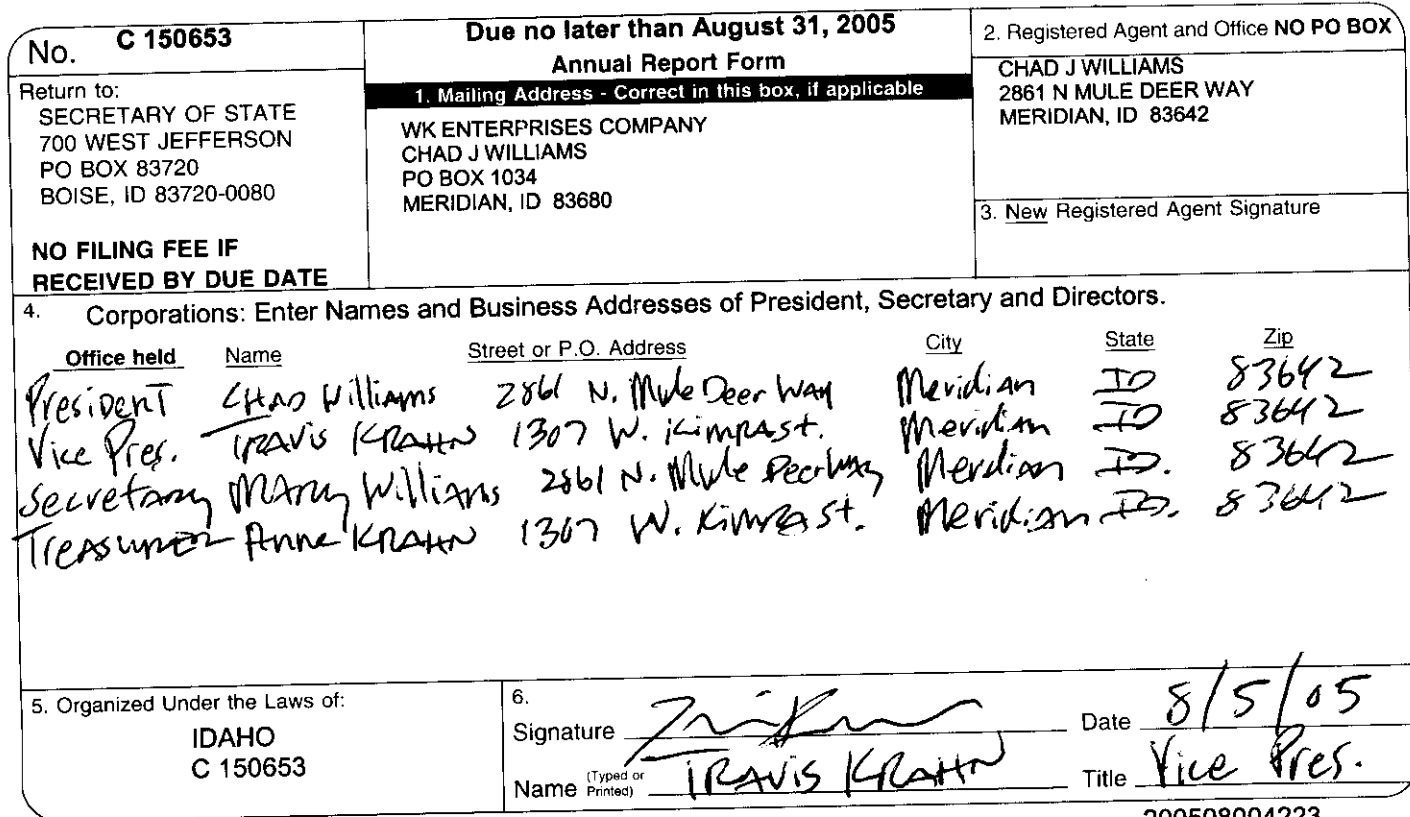 No. C 150653
Return to:
SECRETARY OF STATE
700 WEST JEFFERSON
PO BOX 83720
BOISE, ID 83720-0080
NO FILING FEE IF
RECEIVED BY DUE DATE
Due no later than August 31, 2005
Annual Report Form
1. Mailing Address - Correct in this box, if applicable
WK ENTERPRISES COMPANY
CHAD J WILLIAMS
PO BOX 1034
MERIDIAN, ID 83680
2. Registered Agent and Office NO PO BOX
CHAD J WILLIAMS
2861 N MULE DEER WAY
MERIDIAN, ID 83642
3. New Registered Agent Signature
4. Corporations: Enter Names and Business Addresses of President, Secretary and Directors.
Office held Name Street or P.O. Address City State Zip
President Chad Williams 2861 N. Mule Deer Way Meridian ID 83642
Vice Pres. Travis Krahn 1307 W. St. Meridian ID 83642
Secretary Mary Williams 2861 N. Mule Deer Way Meridian ID. 83642
Treasurer Anne Krahn 1307 W. St. Meridian ID. 83642
5. Organized Under the Laws of:
IDAHO
C 150653
6.
Signature Date 8/5/05
Name (Typed or Printed) TRAVIS KRAHN Title Vice Pres.
200508004223